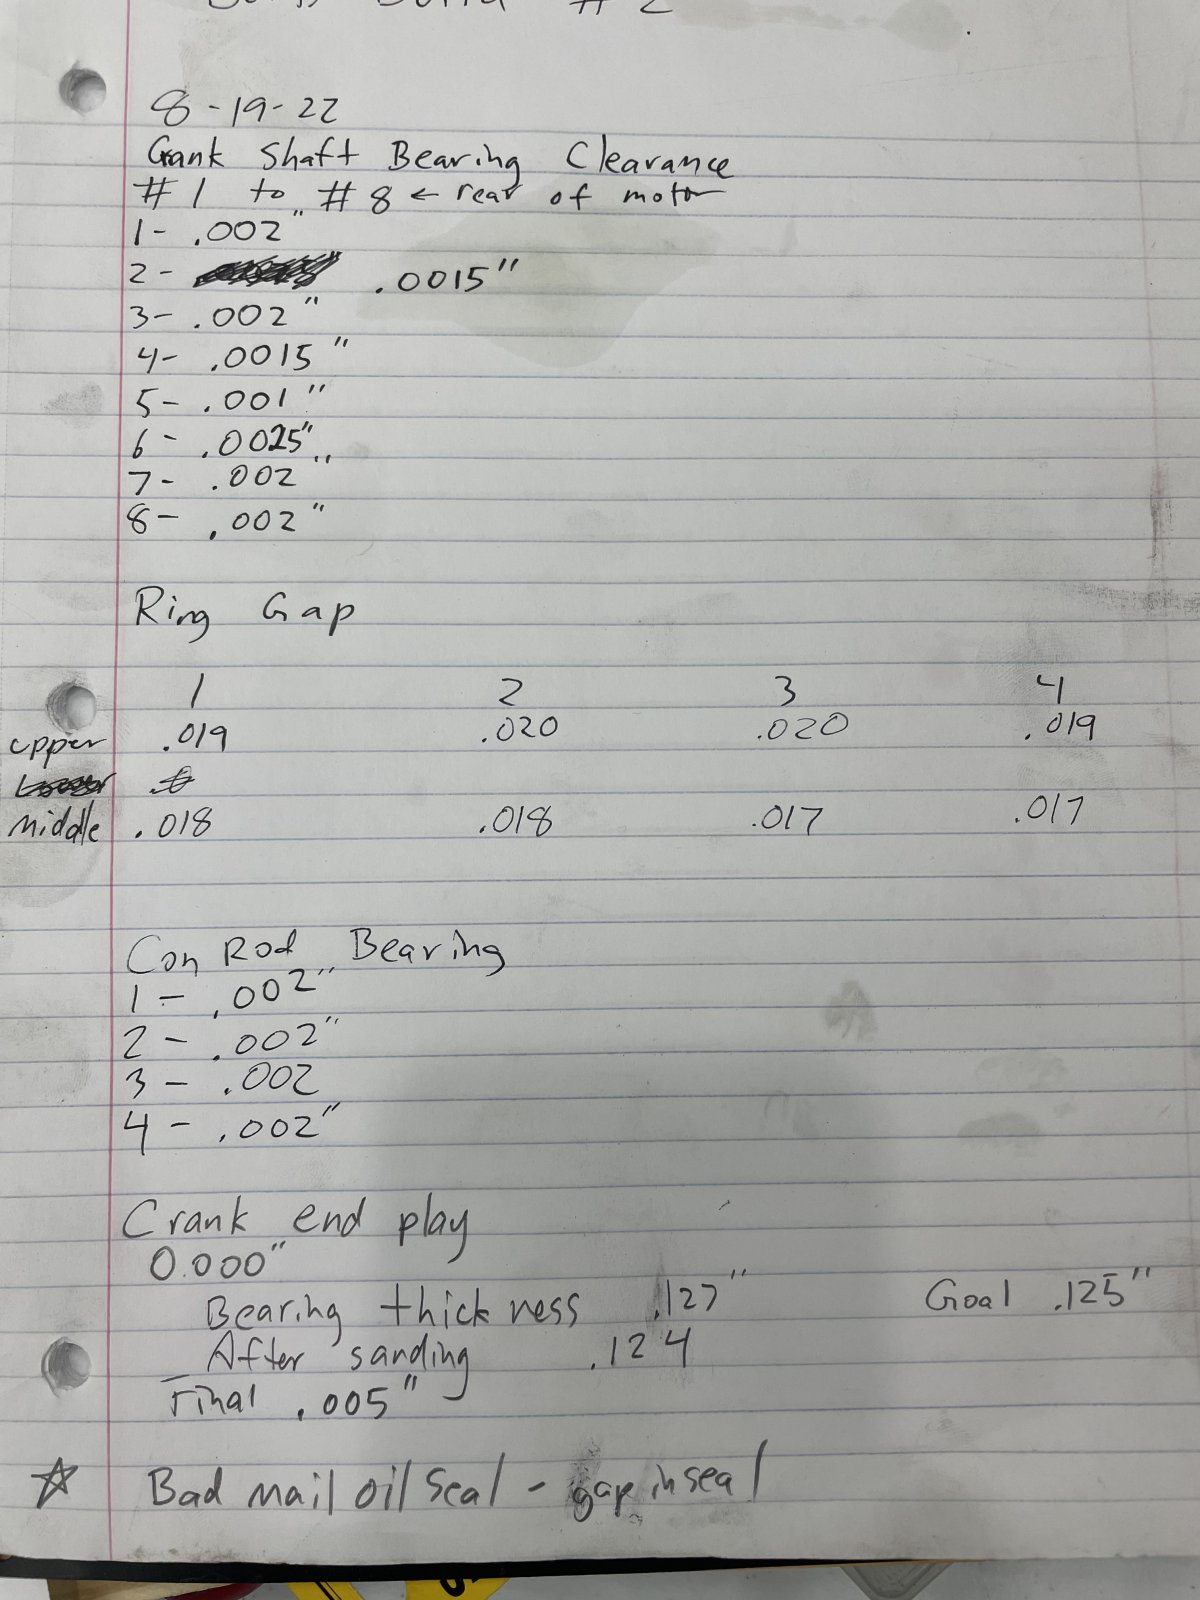 Build #2
8-19-22
Crank Shaft Bearing Clearance
#1 to #8 ← rear of motor
1- .002"
2- .0015"
3- .002"
4- .0015"
5- .001"
6- .0025"
7- .002"
8- .002"
Ring Gap
1 2 3 4
upper .019 .020 .020 .019
middle .018 .018 .017 .017
Con Rod Bearing
1- .002"
2- .002"
3- .002
4- .002"
Crank end play
0.000"
Bearing thickness .127" Goal .125"
After sanding .124
Final .005"
☆ Bad mail oil seal - gap in seal